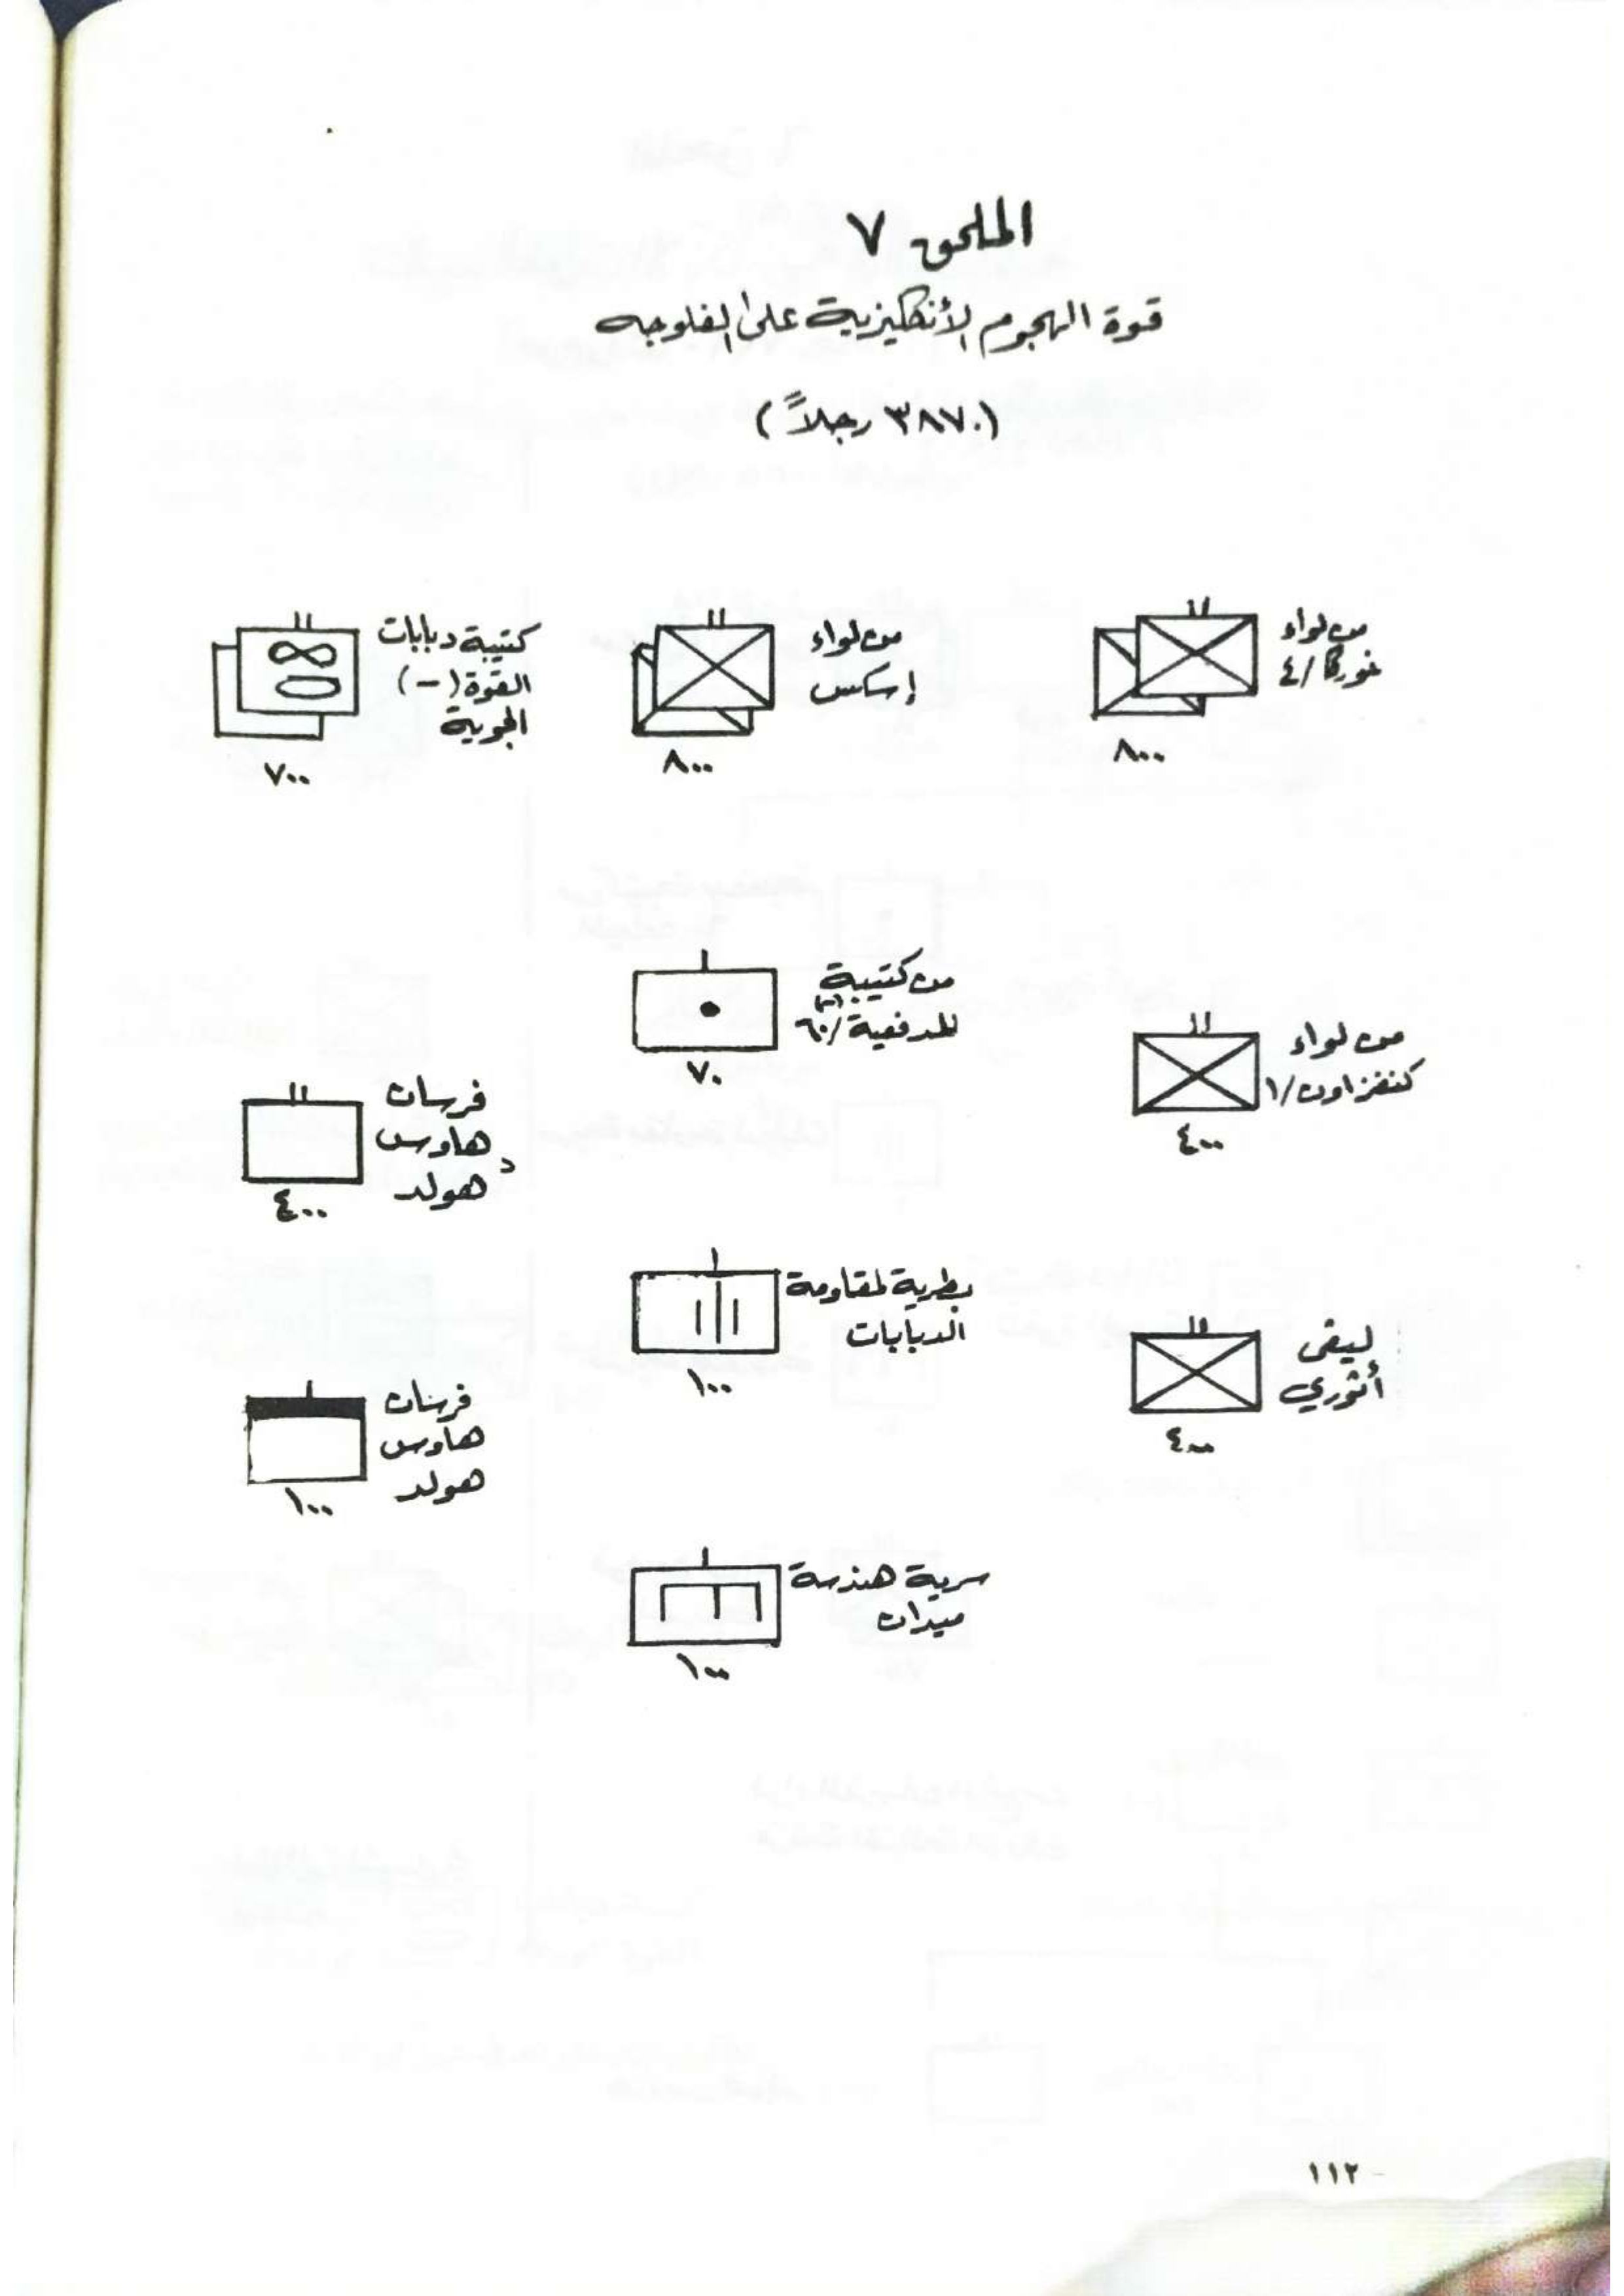 الملحق ٧
قوة الهجوم الأنكليزية على الفلوجه
(٣٨٧٠ رجلاً)
من لواء
غوركا/٤
٨٠٠
من لواء
إسكس
٨٠٠
كتيبة دبابات
القوة (-)
الجوية
٧٠٠
من كتيبة
المدفعية/٦٠
٧٠
من لواء
كنفزاون/١
٤٠٠
فرسان
هاوس
هولد
٤٠٠
بطرية لمقاومة
الدبابات
١٠٠
ليفي
أثوري
٤٠٠
فرسان
هاوس
هولد
١٠٠
سرية هندسة
ميدان
١٠٠
١١٢